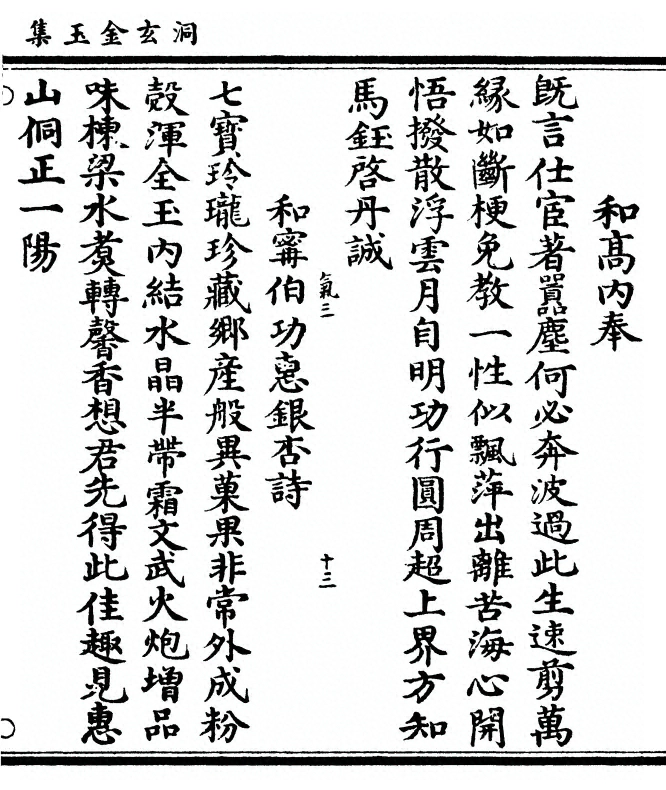 洞玄金玉集
和髙内奉
既言仕宦著嚣塵何必奔波過此生速剪萬
緣如斷梗免教一性似飄萍出離苦海心開
悟撥散浮雲月自明功行圓周超上界方知
馬鈺啓丹誠
氣三
十三
和甯伯功惠銀杏詩
七寶玲瓏珍藏鄉産般異菓果非常外成粉
殼渾全玉内結水晶半帶霜文武火炮增品
味棟梁水煑轉馨香想君先得此佳趣見惠
山侗正一陽